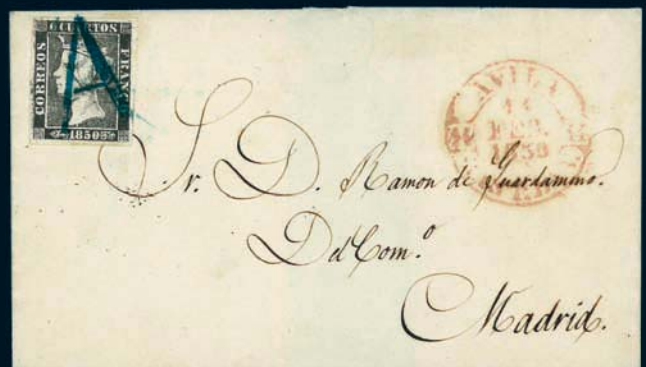 6 CUARTOS
CORREOS
FRANCO
1850
A
AVILA
FEB.
1850
Sr. D. Ramon de Guardamino.
Del Com.º
Madrid.